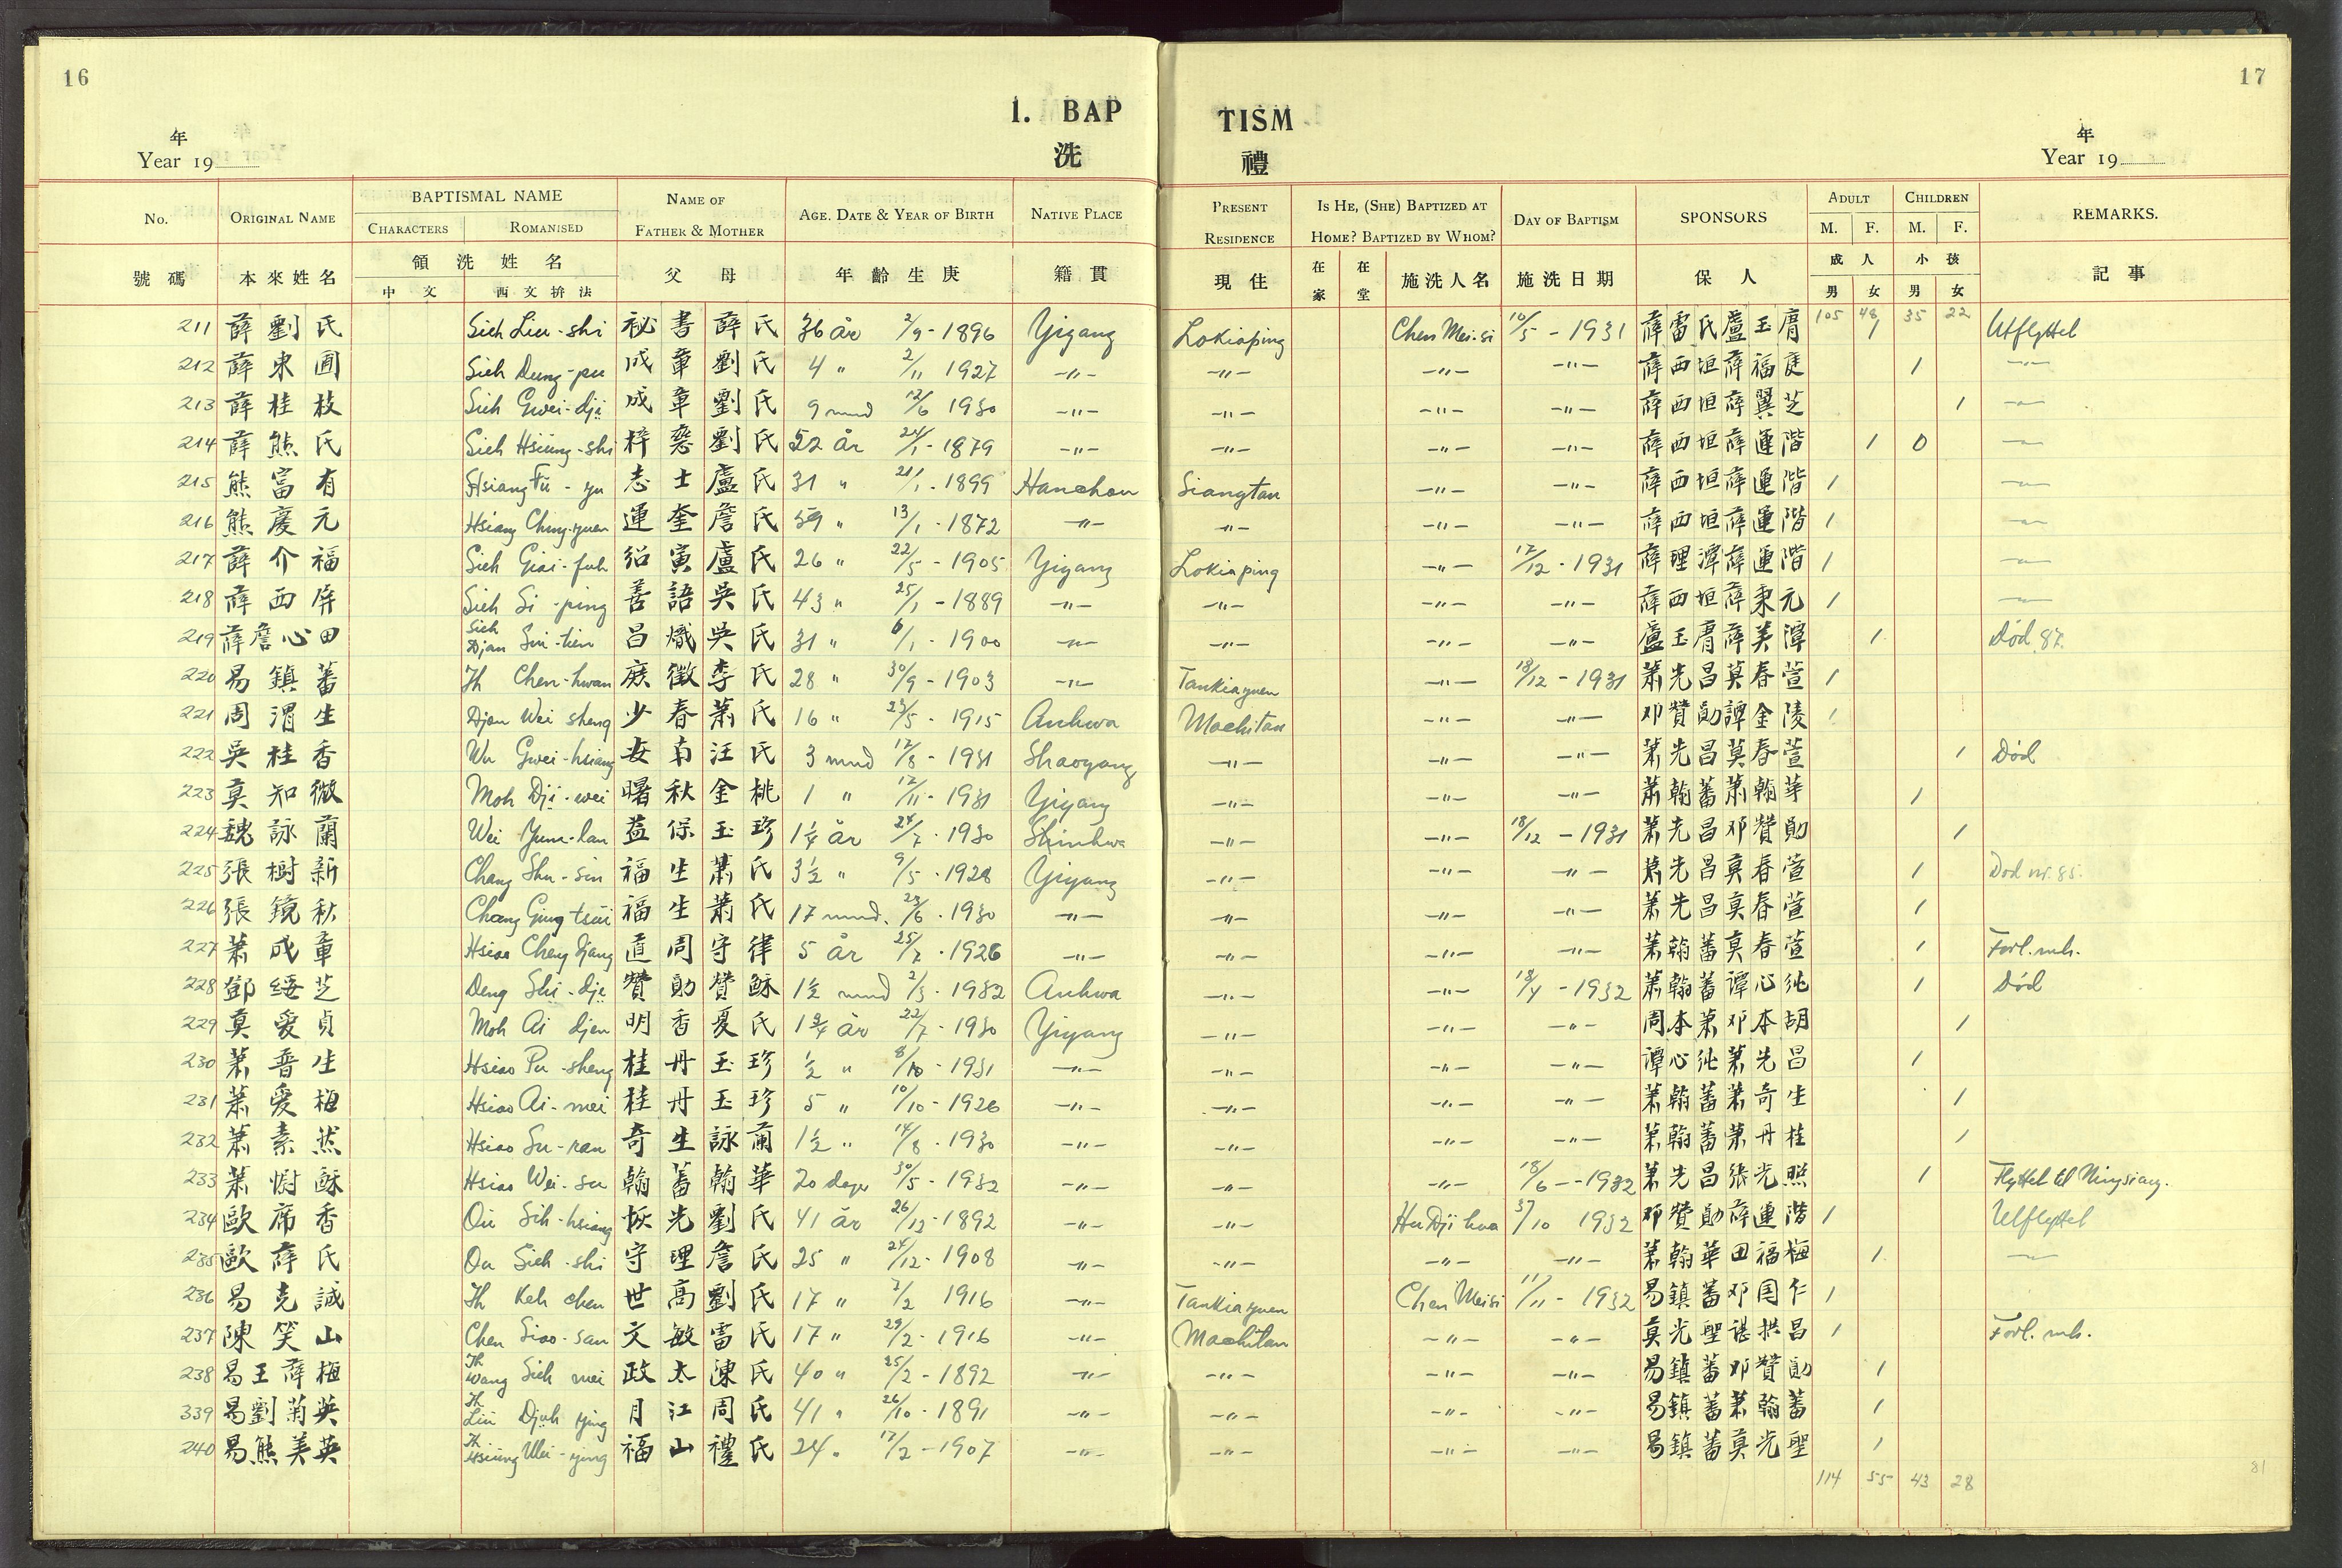 16
17
1. BAP TISM
洗 禮
年
Year 19
年
Year 19
No. ORIGINAL NAME BAPTISMAL NAME CHARACTERS ROMANISED NAME OF FATHER & MOTHER AGE. DATE & YEAR OF BIRTH NATIVE PLACE PRESENT RESIDENCE IS HE, (SHE) BAPTIZED AT HOME? BAPTIZED BY WHOM? DAY OF BAPTISM SPONSORS ADULT M. F. CHILDREN M. F. REMARKS.
號碼 本來姓名 領洗姓名 中文 西文拚法 父母 年齡生庚 籍貫 現住 在家 在堂 施洗人名 施洗日期 保人 成人 男 女 小孩 男 女 記事
105 48 35 22
211 薛劉氏 Sieh Liu-shi 祕書薛氏 36 år 2/9-1896 Yiyang Lokiaping Chen Mei-si 10/5-1931 薛雷氏盧玉膺 1 Utflyttet
212 薛東圃 Sieh Dung-pu 成章劉氏 4 " 2/11 1927 -"- -"- -"- -"- 薛西垣薛福庭 1 -"-
213 薛桂枝 Sieh Gwei-dji 成章劉氏 9 mnd 12/6 1930 -"- -"- -"- -"- 薛西垣薛翼芝 1 -"-
214 薛熊氏 Sieh Hsiung-shi 梓劉氏 52 år 24/1-1879 -"- -"- -"- -"- 薛西垣薛運階 1 0 -"-
215 熊富有 Hsiang Fu-yu 志士盧氏 31 " 21/1-1899 Hanchou Siangtan -"- -"- 薛西垣薛運階 1 -"-
216 熊慶元 Hsiang Ching-yuen 運奎詹氏 59 " 13/1-1872 -"- -"- -"- -"- 薛西垣薛運階 1 -"-
217 薛介福 Sieh Giai-fuh 紹寅盧氏 26 " 22/5-1905 Yiyang Lokiaping -"- 12/12-1931 薛理潭薛運階 1 -"-
218 薛西屏 Sieh Si-ping 善語吳氏 43 " 25/1-1889 -"- -"- -"- -"- 薛西垣薛秉元 1 -"-
219 薛詹心田 Sieh Djan Sin-tien 昌熾吳氏 31 " 6/1-1900 -"- -"- -"- -"- 盧玉膺薛美潭 1 Død 87.
220 易鎮蕃 Ih Chen-hwan 庶徵李氏 28 " 30/9-1903 -"- Tankiayuen -"- 18/12-1931 蕭先昌莫春萱 1
221 周渭生 Djou Wei sheng 少春蕭氏 16 " 23/5-1915 Anhwa Machitan -"- -"- 邓贊勛譚金陵 1
222 吳桂香 Wu Gwei-hsiang 安南汪氏 3 mnd 12/8-1931 Shaoyang -"- -"- -"- 蕭先昌莫春萱 1 Død
223 莫知微 Moh Dji-wei 曙秋金桃 1 " 12/11-1931 Yiyang -"- -"- -"- 蕭翰蕃蕭翰華 1
224 魏詠蘭 Wei Yuin-lan 益保玉珍 1¼ år 24/7-1930 Shinhwa -"- -"- 18/12-1931 蕭先昌邓贊勛 1
225 張樹新 Chang Shu-sin 福生蕭氏 3½ " 9/5-1928 Yiyang -"- -"- -"- 蕭先昌莫春萱 1 Død nr. 85.
226 張鏡秋 Chang Ging tsiu 福生蕭氏 17 mnd. 23/6-1930 -"- -"- -"- -"- 蕭先昌莫春萱 1
227 蕭成章 Hsiao Cheng djang 道周守律 5 år 25/7-1926 -"- -"- -"- -"- 蕭翰蕃莫春萱 1 Forl. mh.
228 鄧綏芝 Deng Shi-dji 贊勛贊穌 1½ mnd 2/3-1932 Anhwa -"- -"- 18/4-1932 蕭翰蕃譚心純 1 Død
229 莫愛貞 Moh Ai djen 明香夏氏 1¾ år 22/7-1930 Yiyang -"- -"- -"- 周本蕭邓本胡 1
230 蕭普生 Hsiao Pu-sheng 桂丹玉珍 ½ " 8/10-1931 -"- -"- -"- -"- 譚心純蕭先昌 1
231 蕭愛梅 Hsiao Ai-mei 桂丹玉珍 5 " 10/10-1926 -"- -"- -"- -"- 蕭翰蕃蕭奇生 1
232 蕭素然 Hsiao Su-ran 奇生詠蘭 1½ " 14/8-1930 -"- -"- -"- -"- 蕭翰蕃蕭丹桂 1
233 蕭慰穌 Hsiao Wei-su 翰蕃翰華 20 dager 30/5-1932 -"- -"- -"- 18/6-1932 蕭先昌張光照 1 Flyttet til Ningsiang.
234 歐席香 Ou Sih-hsiang 恢先劉氏 41 år 26/12-1892 -"- -"- Hu Dji hua 31/10 1932 邓贊勛薛連階 1 Utflyttet
235 歐薛氏 Ou Sieh-shi 守理詹氏 25 " 24/12-1908 -"- -"- -"- -"- 蕭翰華田福梅 1 -"-
236 易克誠 Ih Keh chen 世高劉氏 17 " 2/2 1916 -"- Tankiayuen Chen Meisi 11/11-1932 易鎮蕃邓国仁 1
237 陳笑山 Chen Siao-san 文敏雷氏 17 " 29/2-1916 -"- Machitan -"- -"- 莫光聖諶拱昌 1 Forl. mh.
238 易王薛梅 Ih Wang Sieh mei 政太陳氏 40 " 25/2-1892 -"- -"- -"- -"- 易鎮蕃邓贊勛 1
339 易劉菊英 Ih Liu Djuh ying 月江周氏 41 " 26/10-1891 -"- -"- -"- -"- 易鎮蕃蕭翰蕃 1
240 易熊美英 Ih Hsiung Mei-ying 福山禮氏 24 " 12/2-1907 -"- -"- -"- -"- 易鎮蕃莫光聖 1
114 55 43 28
81